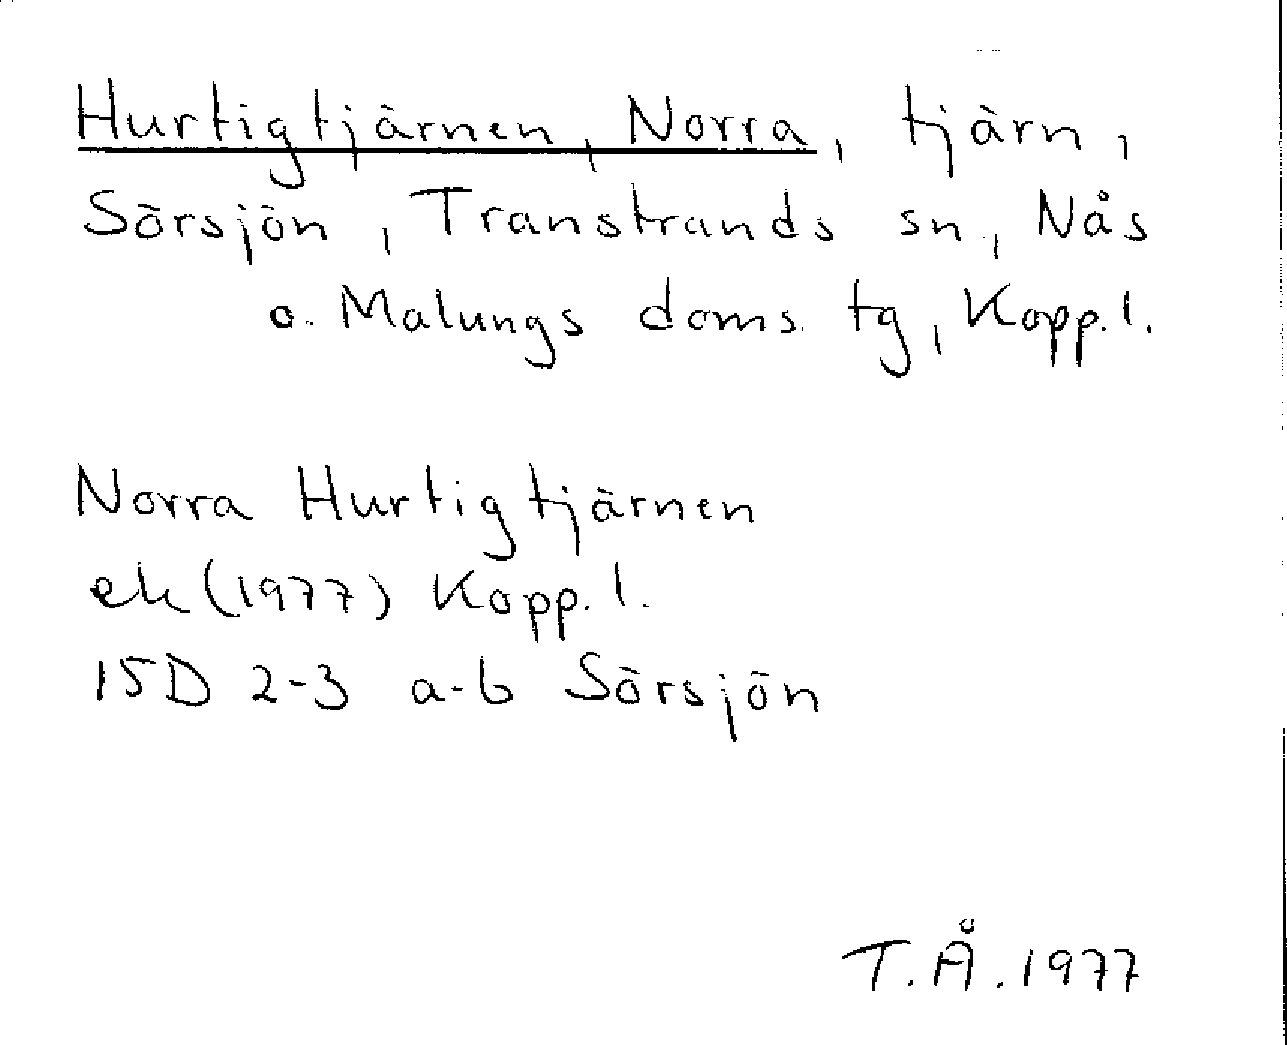 Hurtigtjärnen, Norra, tjärn,
Sörsjön, Transtrands sn, Nås
o. Malungs doms. tg, Kopp. l.
Norra Hurtigtjärnen
ek (1977) Kopp. l.
15D 2-3 a-b Sörsjön
T.Å. 1977